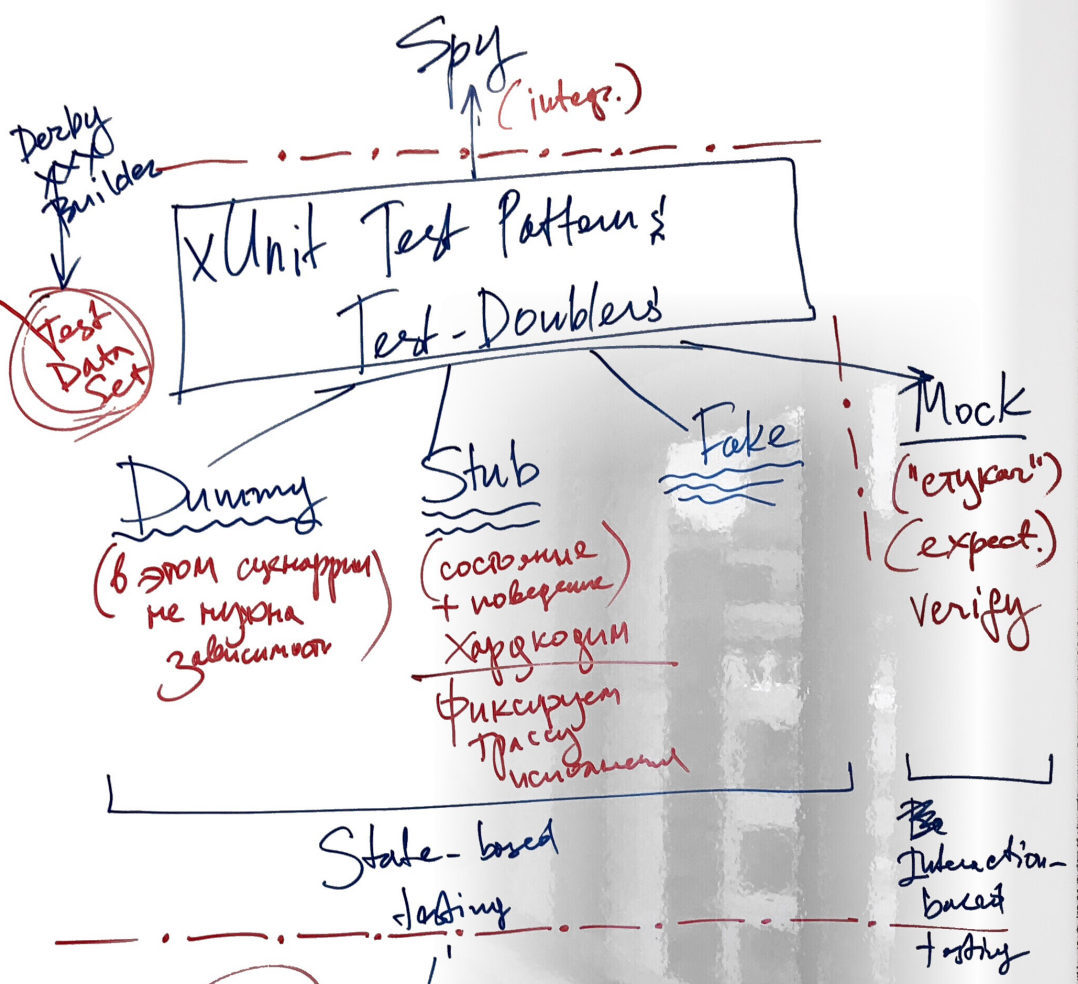 Spy
(integr.)
Derby
XXX
Builder
xUnit Test Patterns
Test-Doublers
Test
Data
Set
Dummy
(в этом сценаррии
не нужна
зависимость)
Stub
(состояние
+ поведение)
Хардкодим
Фиксируем
трассу
исполнения
Fake
Mock
("стукач")
(expect.)
verify
State-based
testing
Interaction-
based
testing